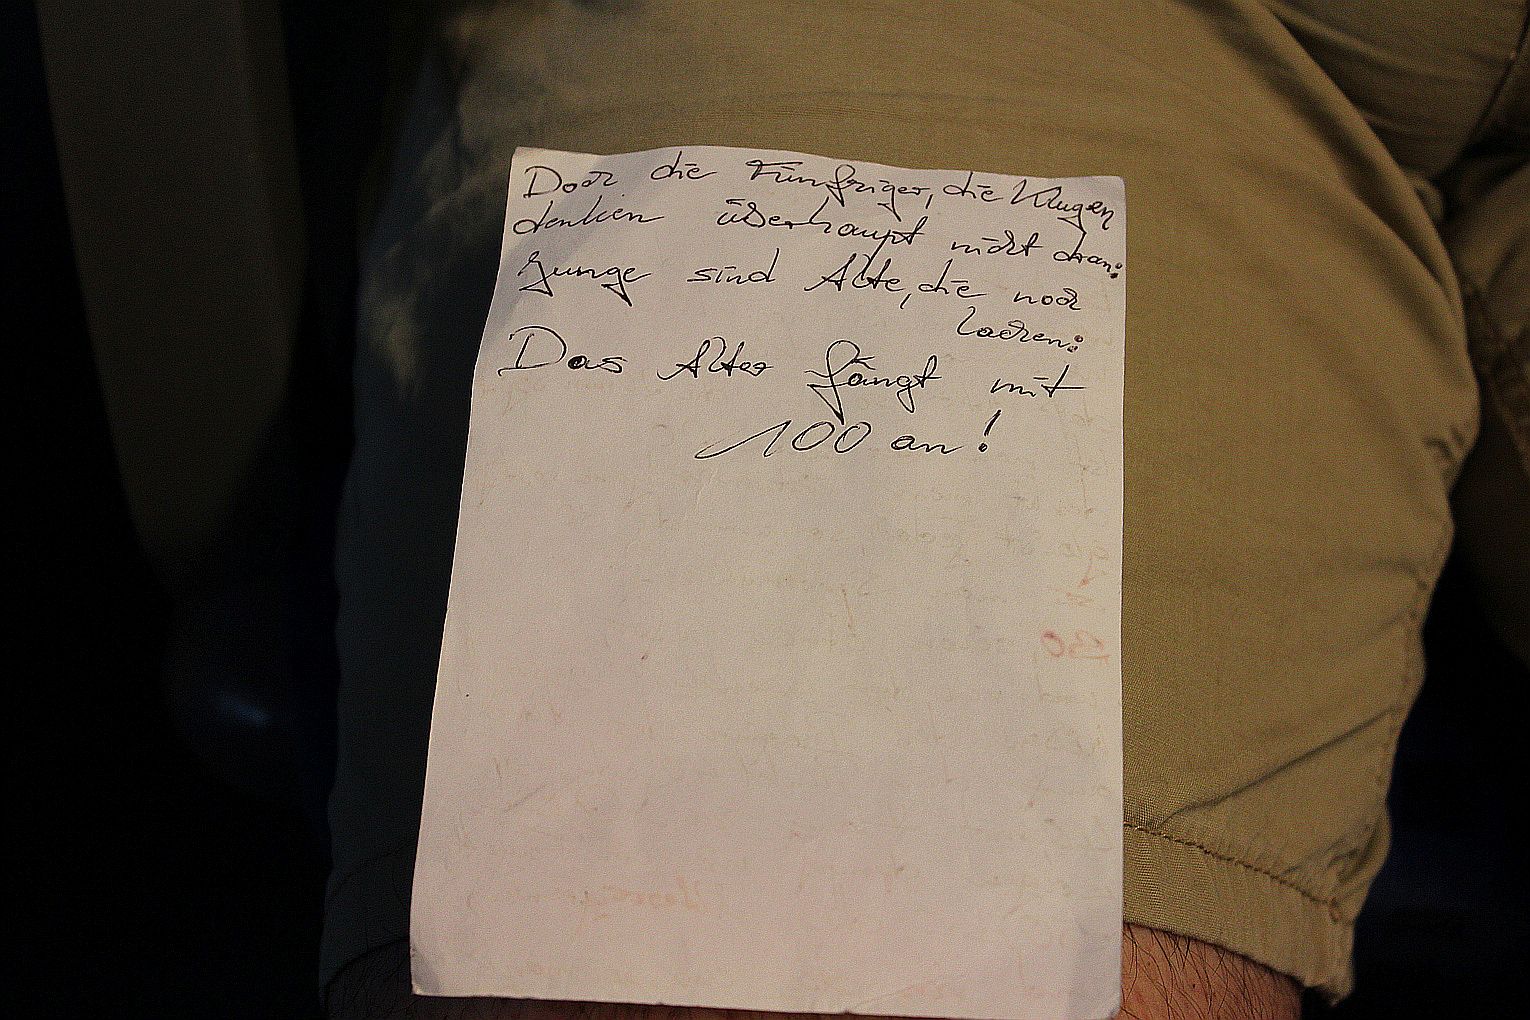 Doch die Fünfziger, die Klugen
denken überhaupt nicht dran:
Junge sind Alte, die noch
lachen:
Das Alter fängt mit
100 an!